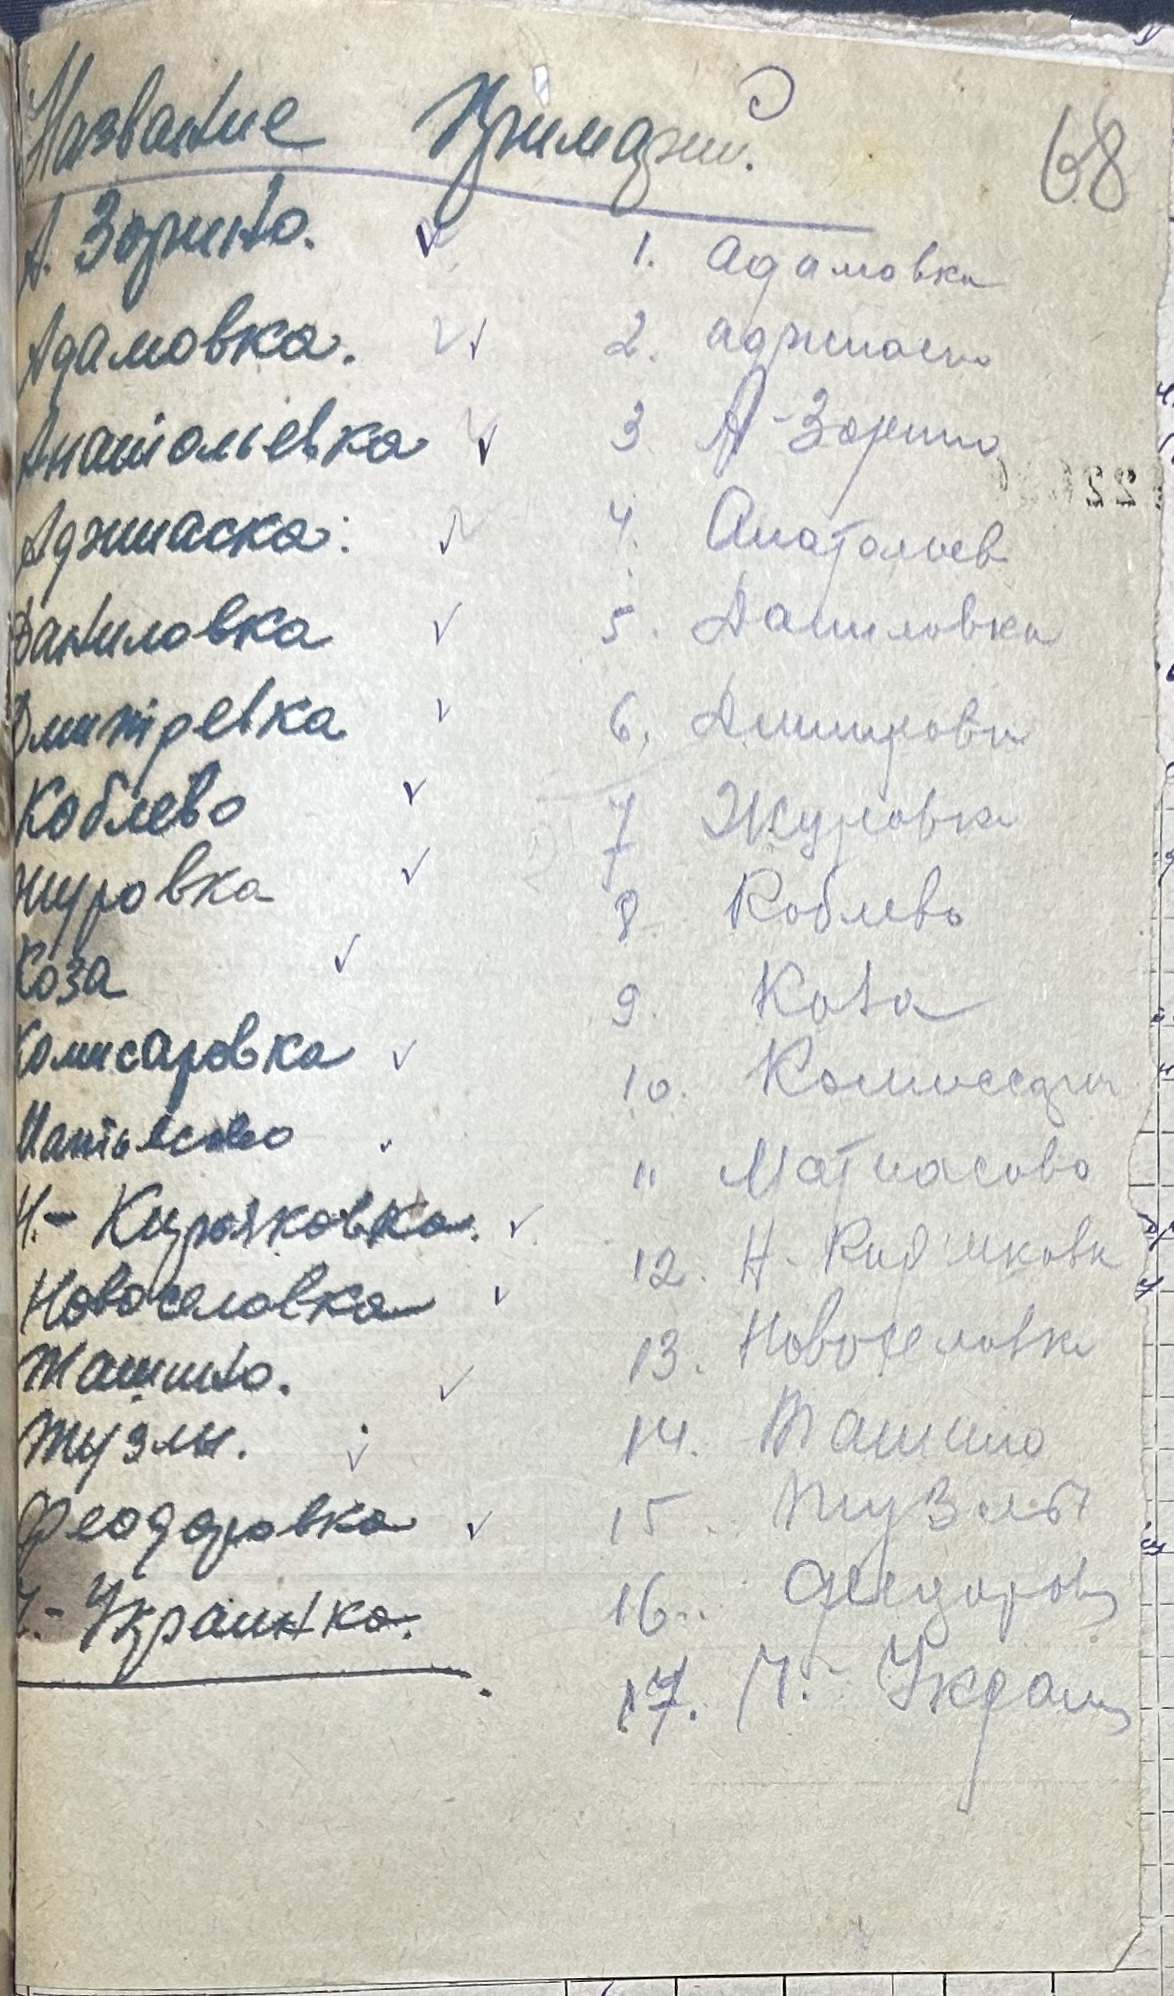 68
Название Примарий.
А. Зорино.
Адамовка.
Анатольевка
Аджиаска:
Даниловка
Дмитревка
Коблево
журовка
Коза
Комисаровка
Матьясово
Н.- Кируяковка.
Новоселовка
Ташино.
Тузлы.
Феодоровка
Ч.- Украинка.
1. Адамовка
2. аджиаск
3 А-Зорино
4. Анатольев
5. Даниловка
6. Дмитровк
7 Журовка
8 Коблево
9. Коза
10. Комиссар
11 Матиасово
12. Н. Кирияковк
13. Новоселовк
14. Ташино
15. Тузлы
16. Федоров
17. Ч. Украин